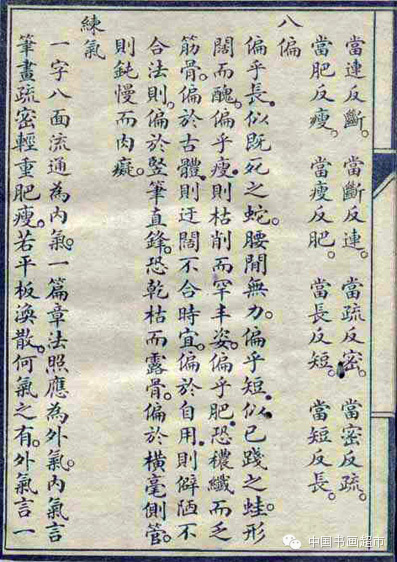 當連反斷。當斷反連。當疏反密。當密反疏。
當肥反瘦。當瘦反肥。當長反短。當短反長。
八偏
偏乎長。似既死之蛇。腰閒無力。偏乎短。似已踐之蛙。形
闊而醜。偏乎瘦。則枯削而罕丰姿。偏乎肥。恐穠纖而乏
筋骨。偏於古體。則迂闊不合時宜。偏於自用。則僻陋不
合法則。偏於豎筆直鋒。恐乾枯而露骨。偏於橫毫側管。
則鈍慢而肉癡。
練氣
一字八面流通為內氣。一篇章法照應為外氣。內氣言
筆畫疏密輕重肥瘦。若平板渙散。何氣之有。外氣言一
中国书画超市